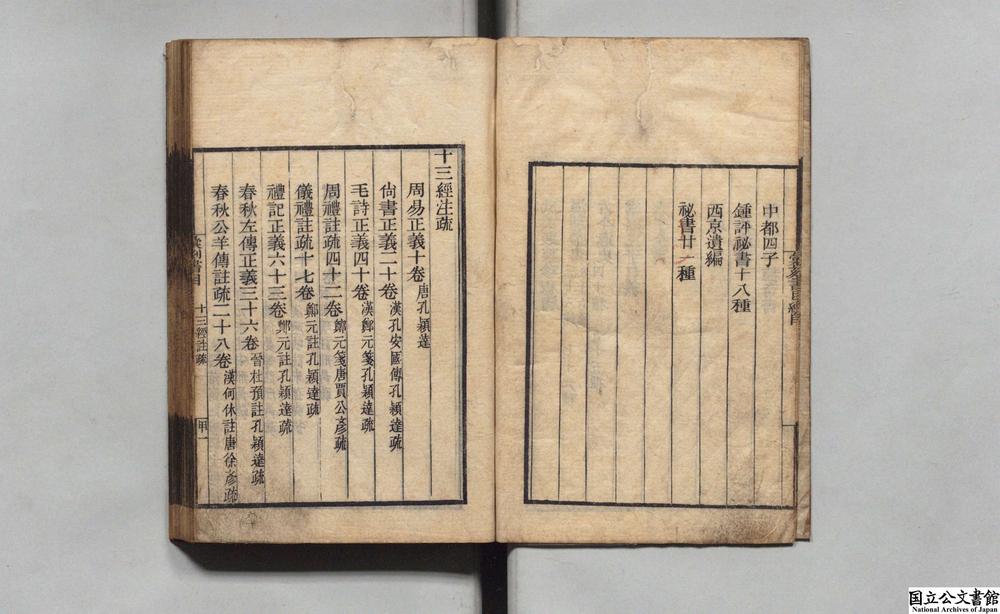 中都四子
鍾評祕書十八種
西京遺編
祕書廿一種
彙刻書目總目
十三經注疏
周易正義十卷唐孔穎達
尙書正義二十卷漢孔安國傳孔穎達疏
毛詩正義四十卷漢鄭元箋孔穎達疏
周禮註疏四十二卷鄭元箋唐賈公彥疏
儀禮註疏十七卷鄭元註孔穎達疏
禮記正義六十三卷鄭元註孔穎達疏
春秋左傳正義三十六卷晉杜預註孔穎達疏
春秋公羊傳註疏二十八卷漢何休註唐徐彥疏
彙刻書目
十三經註疏
甲一
国立公文書館
National Archives of Japan